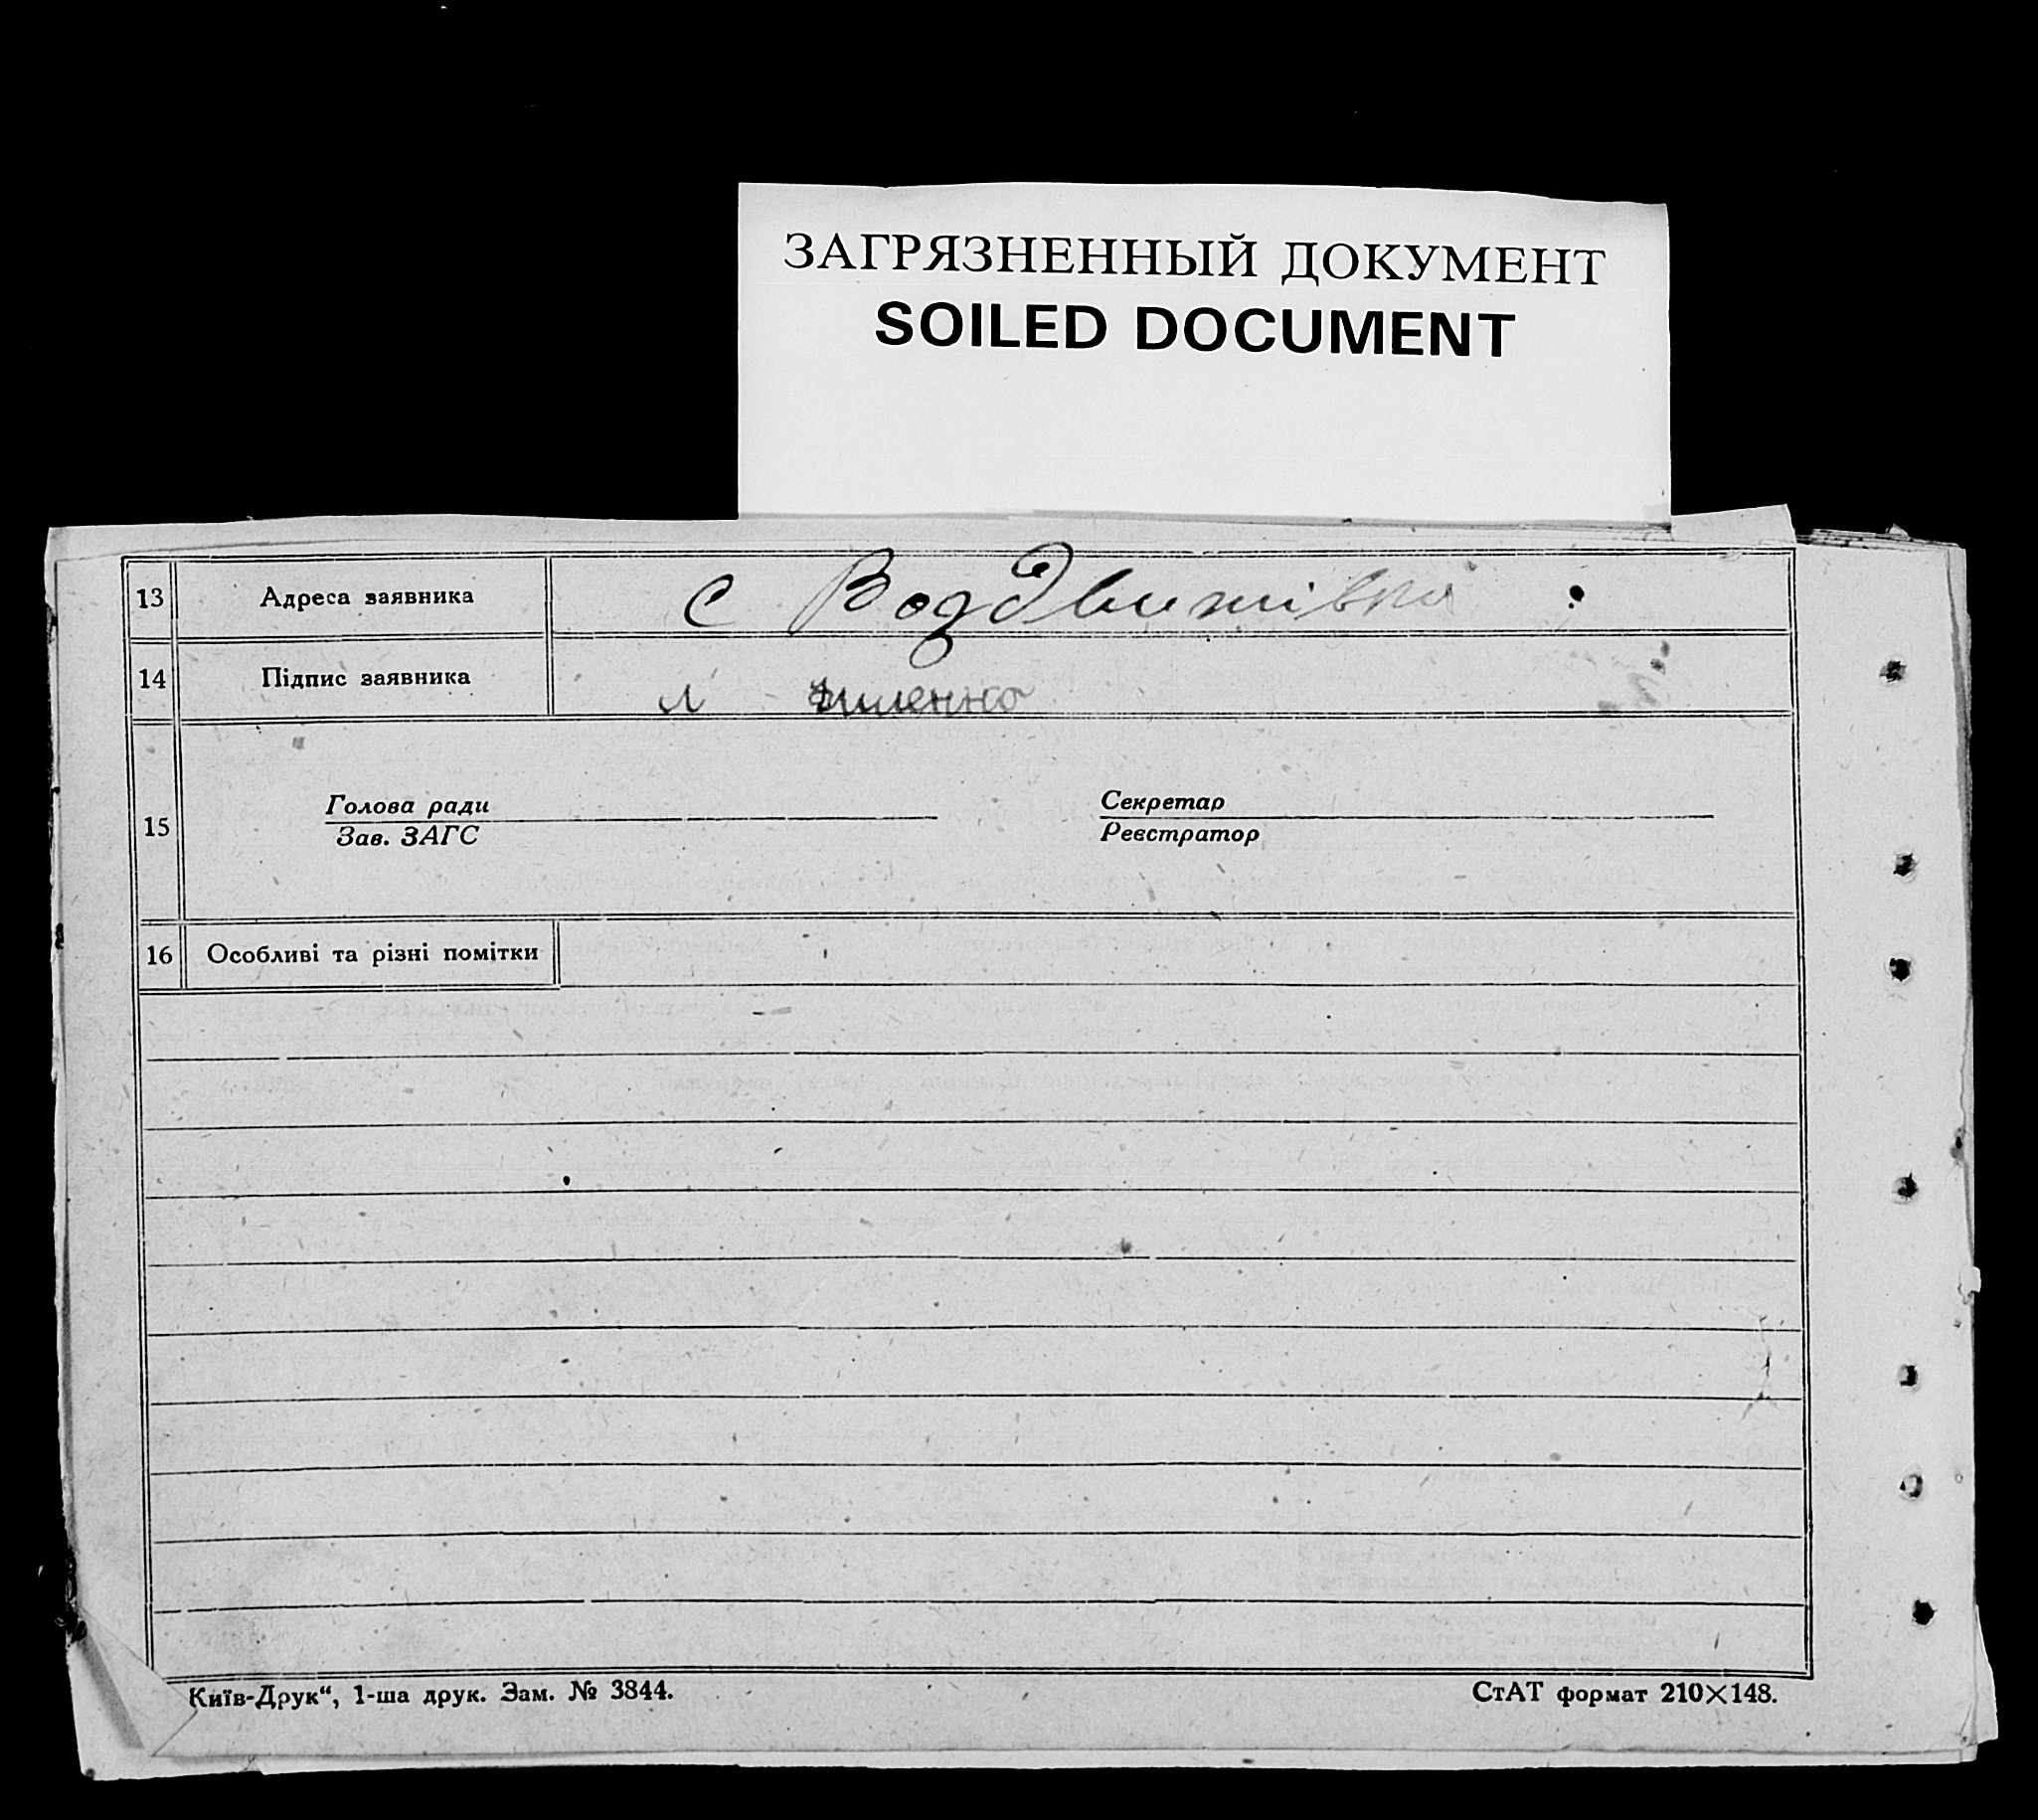 ЗАГРЯЗНЕННЫЙ ДОКУМЕНТ
SOILED DOCUMENT
13 Адреса заявника с Воздвижівка
14 Підпис заявника
15 Голова ради Секретар
Зав. ЗАГС Реєстратор
16 Особливі та різні помітки
Київ-Друк“, 1-ша друк. Зам. № 3844. СтАТ формат 210×148.